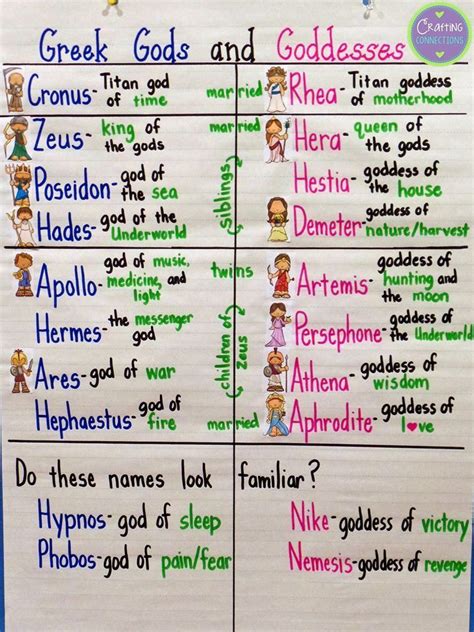 Crafting
CONNECTIONS
Greek Gods and Goddesses
Cronus- Titan god
of time
married
Rhea- Titan goddess
of motherhood
Zeus- king of
the gods
married
Hera- queen of
the gods
Poseidon- god of
the sea
siblings
Hestia- goddess of
the house
Hades- god of the
Underworld
Demeter- goddess of
nature/harvest
Apollo- god of music,
medicine, and
light
twins
Artemis- goddess of
hunting and
the moon
Hermes- the messenger
god
children of
Zeus
Persephone- goddess of
the Underworld
Ares- god of war
Athena- goddess of
wisdom
Hephaestus- god of
fire
married
Aphrodite- goddess of
love
Do these names look familiar?
Hypnos- god of sleep
Nike- goddess of victory
Phobos- god of pain/fear
Nemesis- goddess of revenge